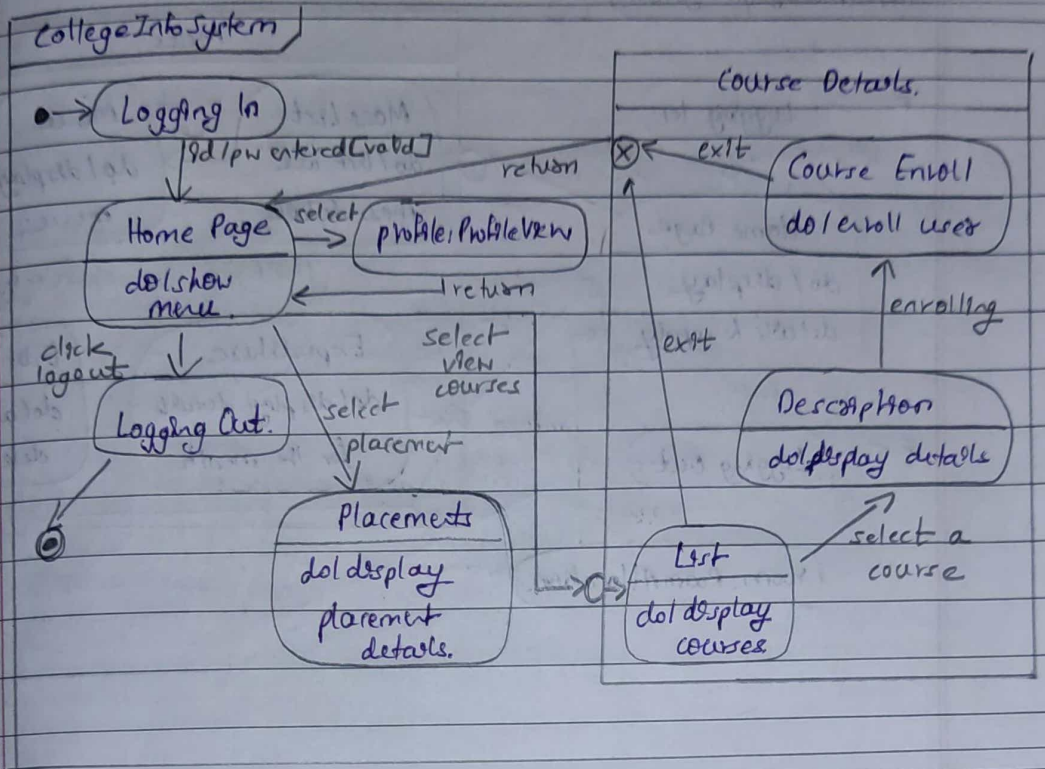 CollegeInfoSystem
Logging In
Id/pw entered[valid]
Home Page
do/show
menu.
select
profile:ProfileView
return
return
click
logout
Logging Out.
select
placement
select
view
courses
Placements
do/display
placement
details.
Course Details.
exit
Course Enroll
do/enroll user
enrolling
exit
Description
do/display details
select a
course
List
do/display
courses